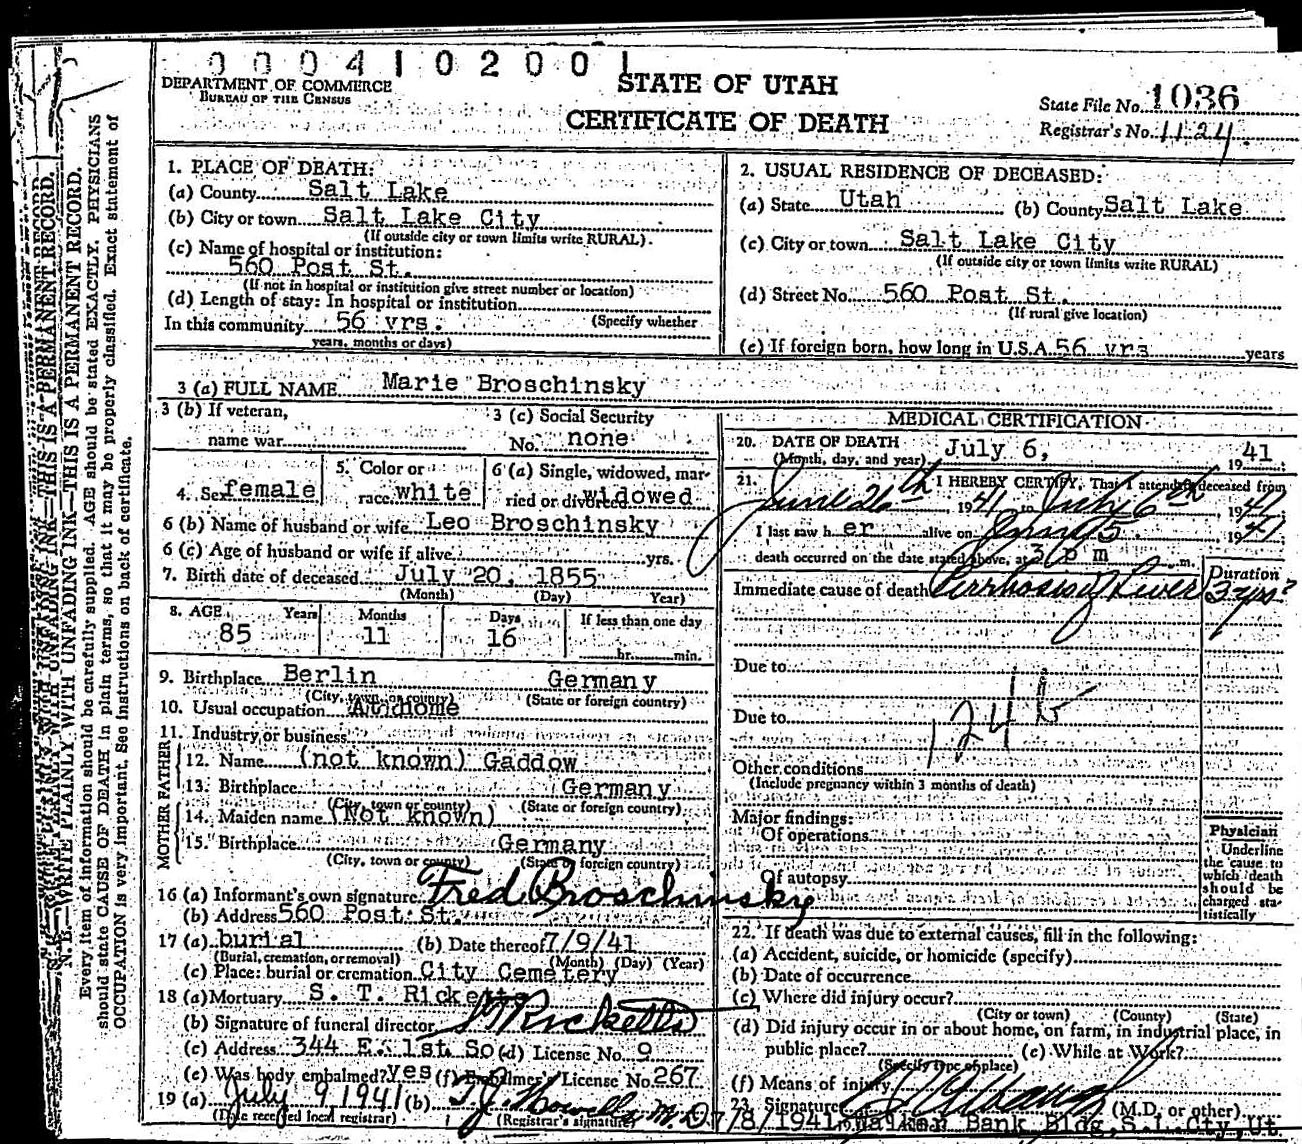 0004102001
DEPARTMENT OF COMMERCE
BUREAU OF THE CENSUS
STATE OF UTAH
CERTIFICATE OF DEATH
State File No. 1036
Registrar's No. 1124
N. B.—WRITE PLAINLY WITH UNFADING INK—THIS IS A PERMANENT RECORD.
Every item of information should be carefully supplied. AGE should be stated EXACTLY. PHYSICIANS
should state CAUSE OF DEATH in plain terms, so that it may be properly classified. Exact statement of
OCCUPATION is very important. See instructions on back of certificate.
1. PLACE OF DEATH:
(a) County Salt Lake
(b) City or town Salt Lake City
(If outside city or town limits write RURAL)
(c) Name of hospital or institution:
560 Post St.
(If not in hospital or institution give street number or location)
(d) Length of stay: In hospital or institution
In this community 56 yrs. (Specify whether
years, months or days)
2. USUAL RESIDENCE OF DECEASED:
(a) State Utah (b) County Salt Lake
(c) City or town Salt Lake City
(If outside city or town limits write RURAL)
(d) Street No. 560 Post St.
(If rural give location)
(e) If foreign born, how long in U.S.A. 56 yrs years
3 (a) FULL NAME Marie Broschinsky
3 (b) If veteran,
name war
3 (c) Social Security
No. none
4. Sex female
5. Color or
race white
6 (a) Single, widowed, mar-
ried or divorced widowed
6 (b) Name of husband or wife Leo Broschinsky
6 (c) Age of husband or wife if alive yrs.
7. Birth date of deceased July 20, 1855
(Month) (Day) Year)
8. AGE Years Months Days If less than one day
85 11 16 hr. min.
9. Birthplace Berlin Germany
(City, town, or county) (State or foreign country)
10. Usual occupation At home
11. Industry or business
FATHER
12. Name (not known) Gaddow
13. Birthplace Germany
(City, town or county) (State or foreign country)
MOTHER
14. Maiden name (Not known)
15. Birthplace Germany
(City, town or county) (State or foreign country)
16 (a) Informant's own signature Fred Broschinsky
(b) Address 560 Post St.
17 (a) burial (b) Date thereof 7/9/41
(Burial, cremation, or removal) (Month) (Day) (Year)
(c) Place: burial or cremation City Cemetery
18 (a) Mortuary S. T. Ricketts
(b) Signature of funeral director Ricketts
(c) Address 344 E. 1st So (d) License No. 9
(e) Was body embalmed? yes (f) Embalmer's License No. 267
19 (a) July 9 1941 (b) T. J. Howells M.D
(Date received local registrar) (Registrar's signature)
MEDICAL CERTIFICATION
20. DATE OF DEATH July 6, 1941
(Month, day, and year)
21. I HEREBY CERTIFY, That I attended deceased from
June 26th 1941 to July 6th 1941
I last saw her alive on 5 1941
death occurred on the date stated above, at 3 p m m.
Duration
Immediate cause of death Cirrhosis of Liver 3 yrs?
Due to
Due to
124 b
Other conditions
(Include pregnancy within 3 months of death)
Major findings:
Of operations
Of autopsy
Physician
Underline
the cause to
which death
should be
charged sta-
tistically
22. If death was due to external causes, fill in the following:
(a) Accident, suicide, or homicide (specify)
(b) Date of occurrence
(c) Where did injury occur?
(City or town) (County) (State)
(d) Did injury occur in or about home, on farm, in industrial place, in
public place? (e) While at Work?
(Specify type of place)
(f) Means of injury
23. Signature (M.D. or other)
7/8/1941 Walker Bank Bldg, S.L.City, Ut.